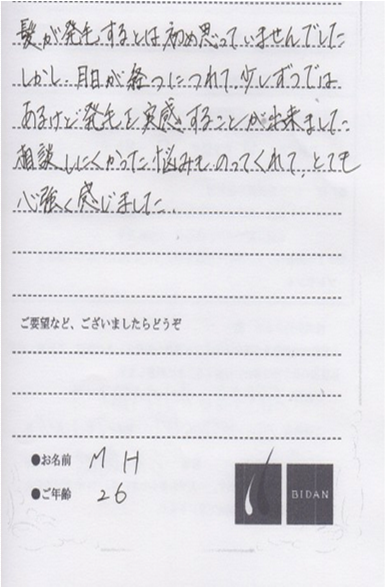 髪が発毛するとは初め思っていませんでした
しかし、月日が経つにつれて、少しずつでは
あるけど発毛を実感することが出来ました
相談しにくかった悩みものってくれて、とても
心強く感じました。
ご要望など、ございましたらどうぞ
●お名前 M H
●ご年齢 26
BIDAN